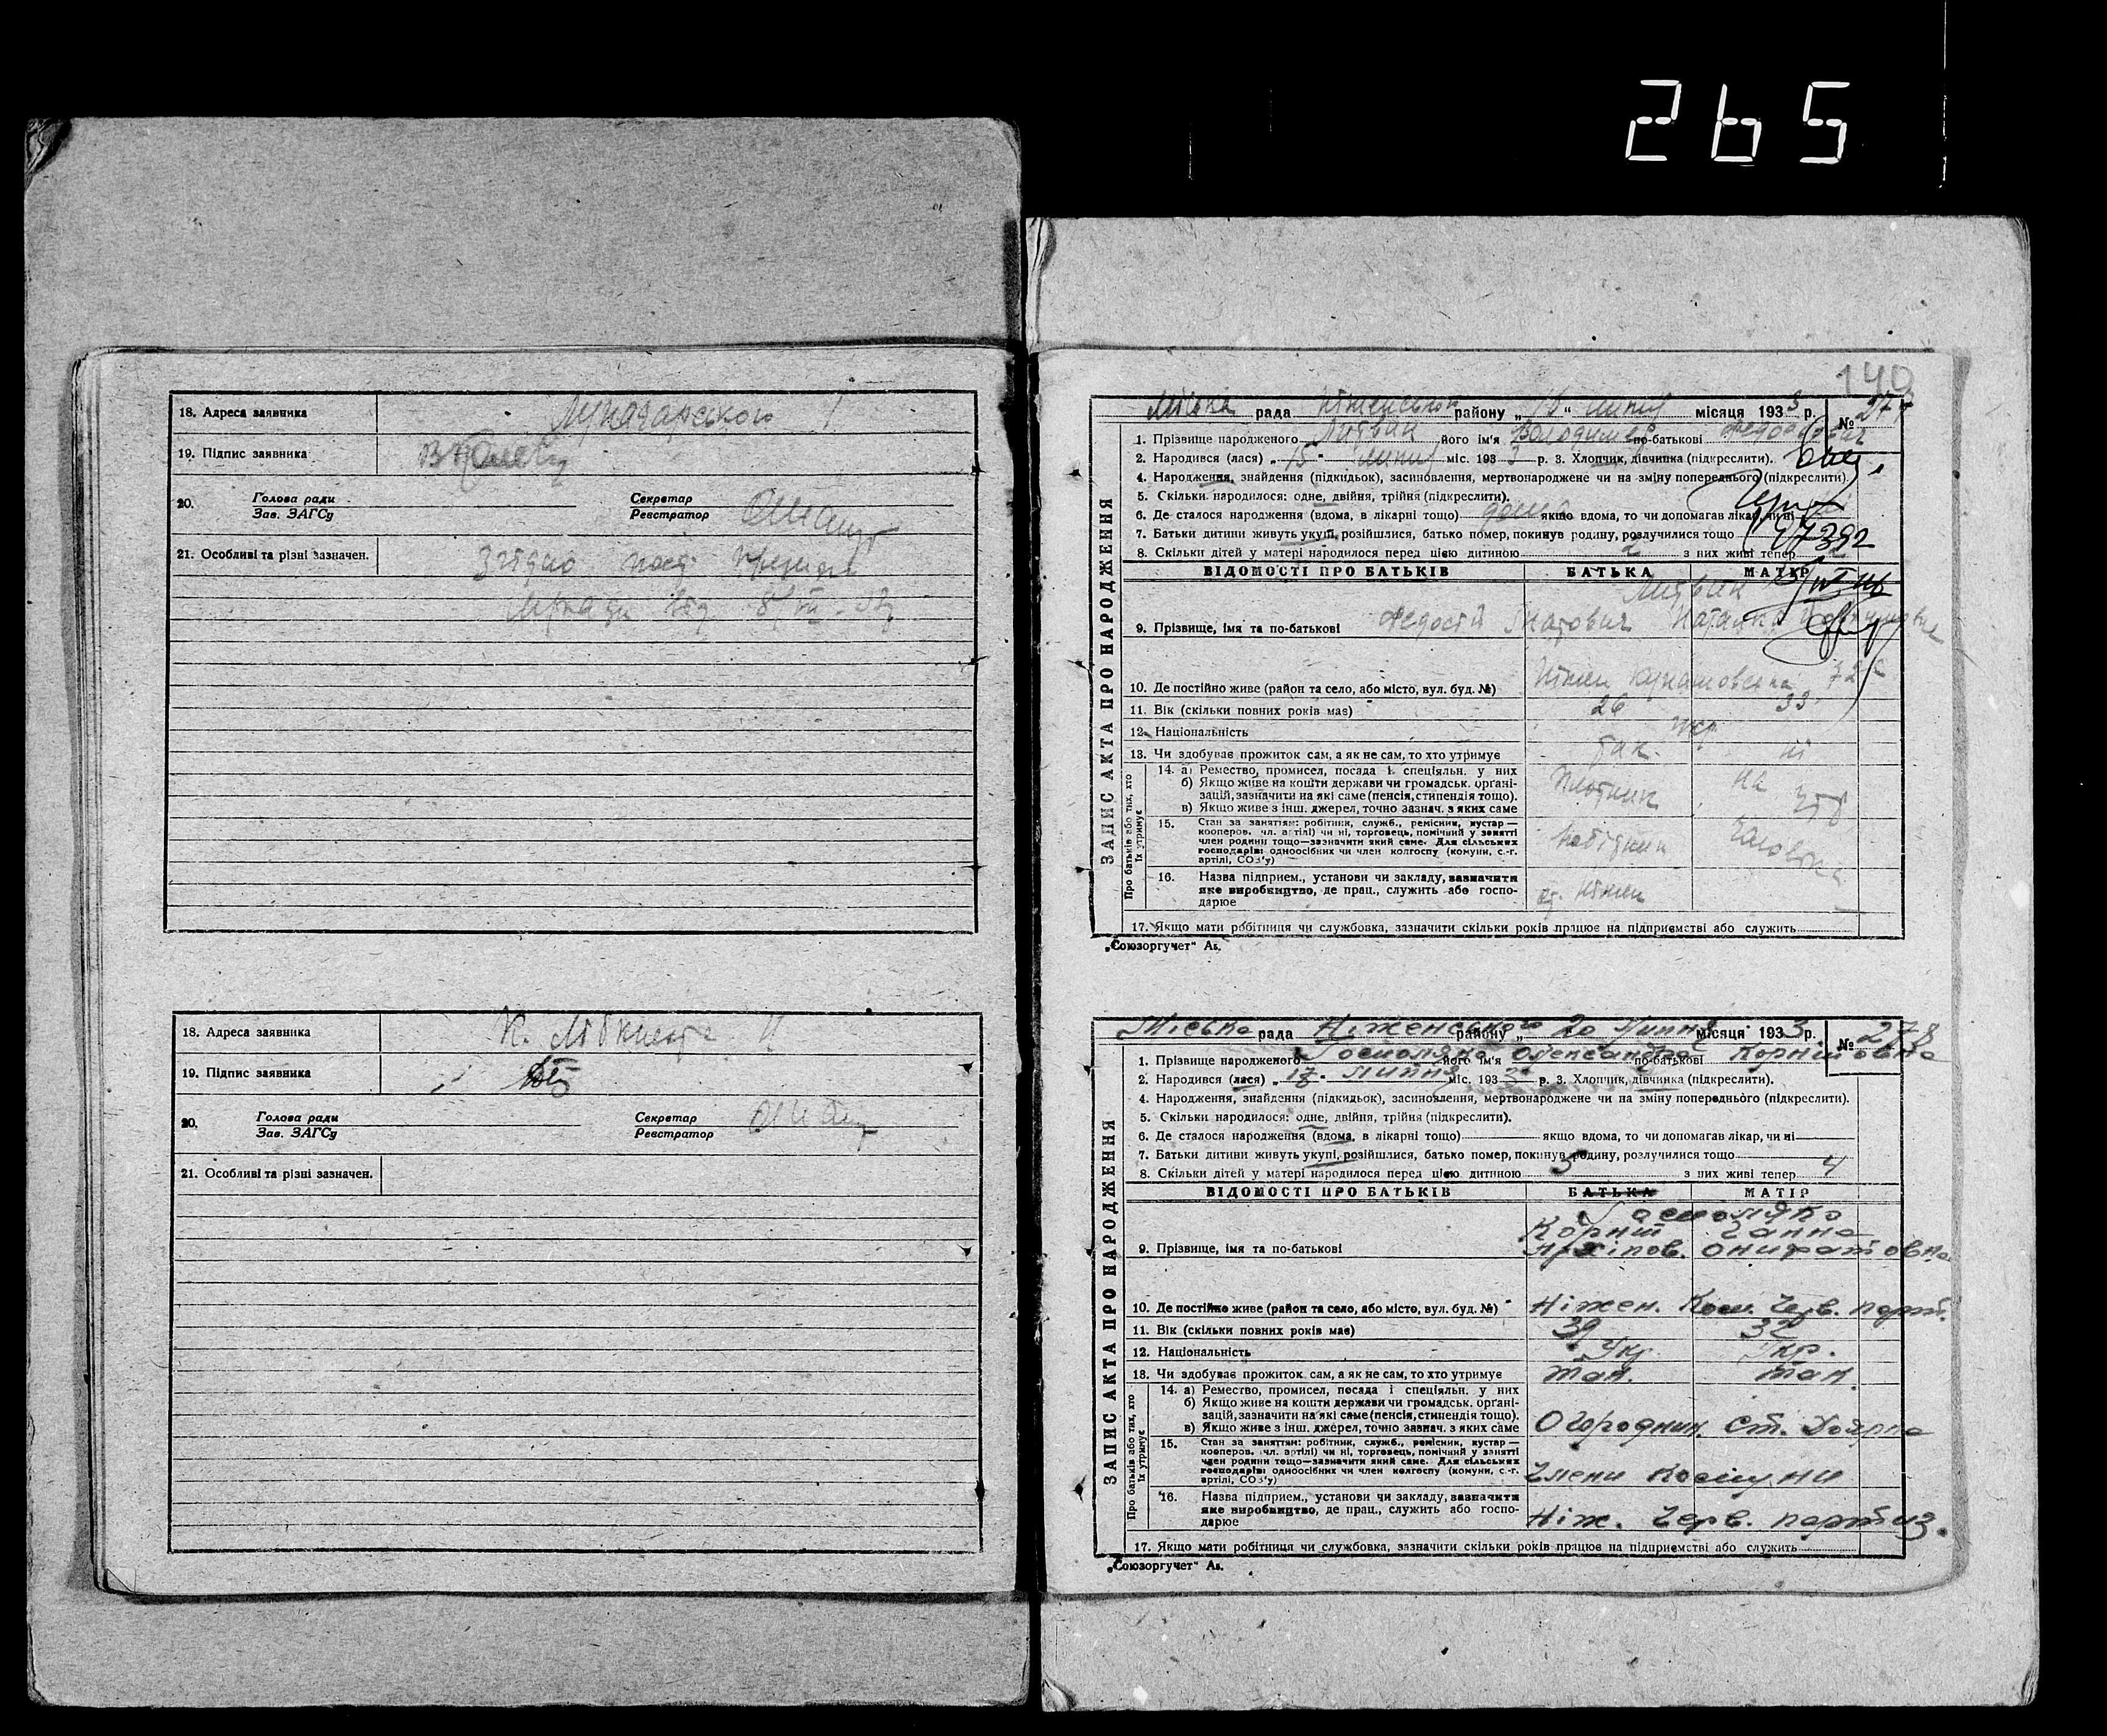 265
18. Адреса заявника Луначарського 1
19. Підпис заявника
20. Голова ради Зав. ЗАГСу Секретар Реєстратор
21. Особливі та різні зазначен. Згідно пост.
від 8/VII - 33
18. Адреса заявника К. Лібкнехта
19. Підпис заявника
20. Голова ради Зав. ЗАГСу Секретар Реєстратор
21. Особливі та різні зазначен.
140
Міська рада Ніженського району „ “ липня місяця 1933 р. № 277
ЗАПИС АКТА ПРО НАРОДЖЕННЯ
1. Прізвище народженого Литвин його ім'я Володимир по-батькові Федосієвич
2. Народився (лася) „15“ липня міс. 1933 р. 3. Хлопчик, дівчинка (підкреслити).
4. Народження, знайдення (підкидьок), засиновлення, мертвонароджене чи на зміну попереднього (підкреслити).
5. Скільки народилося: одне, двійня, трійня (підкреслити).
6. Де сталося народження (вдома, в лікарні тощо) дома якщо вдома, то чи допомагав лікар, чи ні
7. Батьки дитини живуть укупі, розійшлися, батько помер, покинув родину, розлучилися тощо
8. Скільки дітей у матері народилося перед цією дитиною 2 з них живі тепер 2
ВІДОМОСТІ ПРО БАТЬКІВ БАТЬКА МАТІР
Литвин
9. Прізвище, імя та по-батькові Федосій Наталка
10. Де постійно живе (район та село, або місто, вул. буд. №) Ніжен
11. Вік (скільки повних років має) 26 33
12. Національність укр.
13. Чи здобуває прожиток сам, а як не сам, то хто утримує так. ні
Про батьків або тих, хто їх утримує
14. а) Ремество, промисел, посада і спеціяльн. у них
б) Якщо живе на кошти держави чи громадськ. органі-
зацій, зазначити на які саме (пенсія, стипендія тощо).
в) Якщо живе з інш. джерел, точно зазнач. з яких саме
Плотник на утр
15. Стан за заняттям: робітник, служб., ремісник, кустар—
кооперов. чл. артілі) чи ні, торговець, помічний у занятті
член родини тощо—зазначити який саме. Для сільських
господарів: одноосібних чи член колгоспу (комуни, с.-г.
артілі, СОЗ'у)
робітник чоловіка
16. Назва підприєм., установи чи закладу, зазначити
яке виробництво, де прац., служить або госпо-
дарює
ст. Ніжен
17. Якщо мати робітниця чи службовка, зазначити скільки років працює на підприємстві або служить
„Союзоргучет“ Аб.
Міська рада Ніженського району „ 20 Липня місяця 1933 р. № 278
ЗАПИС АКТА ПРО НАРОДЖЕННЯ
1. Прізвище народженого його ім'я Олександра по-батькові Корніївна
2. Народився (лася) „17“ липня міс. 1933 р. 3. Хлопчик, дівчинка (підкреслити).
4. Народження, знайдення (підкидьок), засиновлення, мертвонароджене чи на зміну попереднього (підкреслити).
5. Скільки народилося: одне, двійня, трійня (підкреслити).
6. Де сталося народження (вдома, в лікарні тощо) якщо вдома, то чи допомагав лікар, чи ні
7. Батьки дитини живуть укупі, розійшлися, батько помер, покинув родину, розлучилися тощо
8. Скільки дітей у матері народилося перед цією дитиною 5 з них живі тепер 4
ВІДОМОСТІ ПРО БАТЬКІВ БАТЬКА МАТІР
Корній Ганна
9. Прізвище, імя та по-батькові Архіпов.
10. Де постійно живе (район та село, або місто, вул. буд. №) Ніжен. Ком. Черв. парт.
11. Вік (скільки повних років має) 39 32
12. Національність Укр. Укр.
13. Чи здобуває прожиток сам, а як не сам, то хто утримує так. так.
Про батьків або тих, хто їх утримує
14. а) Ремество, промисел, посада і спеціяльн. у них
б) Якщо живе на кошти держави чи громадськ. органі-
зацій, зазначити на які саме (пенсія, стипендія тощо).
в) Якщо живе з інш. джерел, точно зазнач. з яких саме
Огородник Ст. Доярка
15. Стан за заняттям: робітник, служб., ремісник, кустар—
кооперов. чл. артілі) чи ні, торговець, помічний у занятті
член родини тощо—зазначити який саме. Для сільських
господарів: одноосібних чи член колгоспу (комуни, с.-г.
артілі, СОЗ'у)
Члени Комуни
16. Назва підприєм., установи чи закладу, зазначити
яке виробництво, де прац., служить або госпо-
дарює
Ніж. Черв. партиз.
17. Якщо мати робітниця чи службовка, зазначити скільки років працює на підприємстві або служить
„Союзоргучет“ Аб.